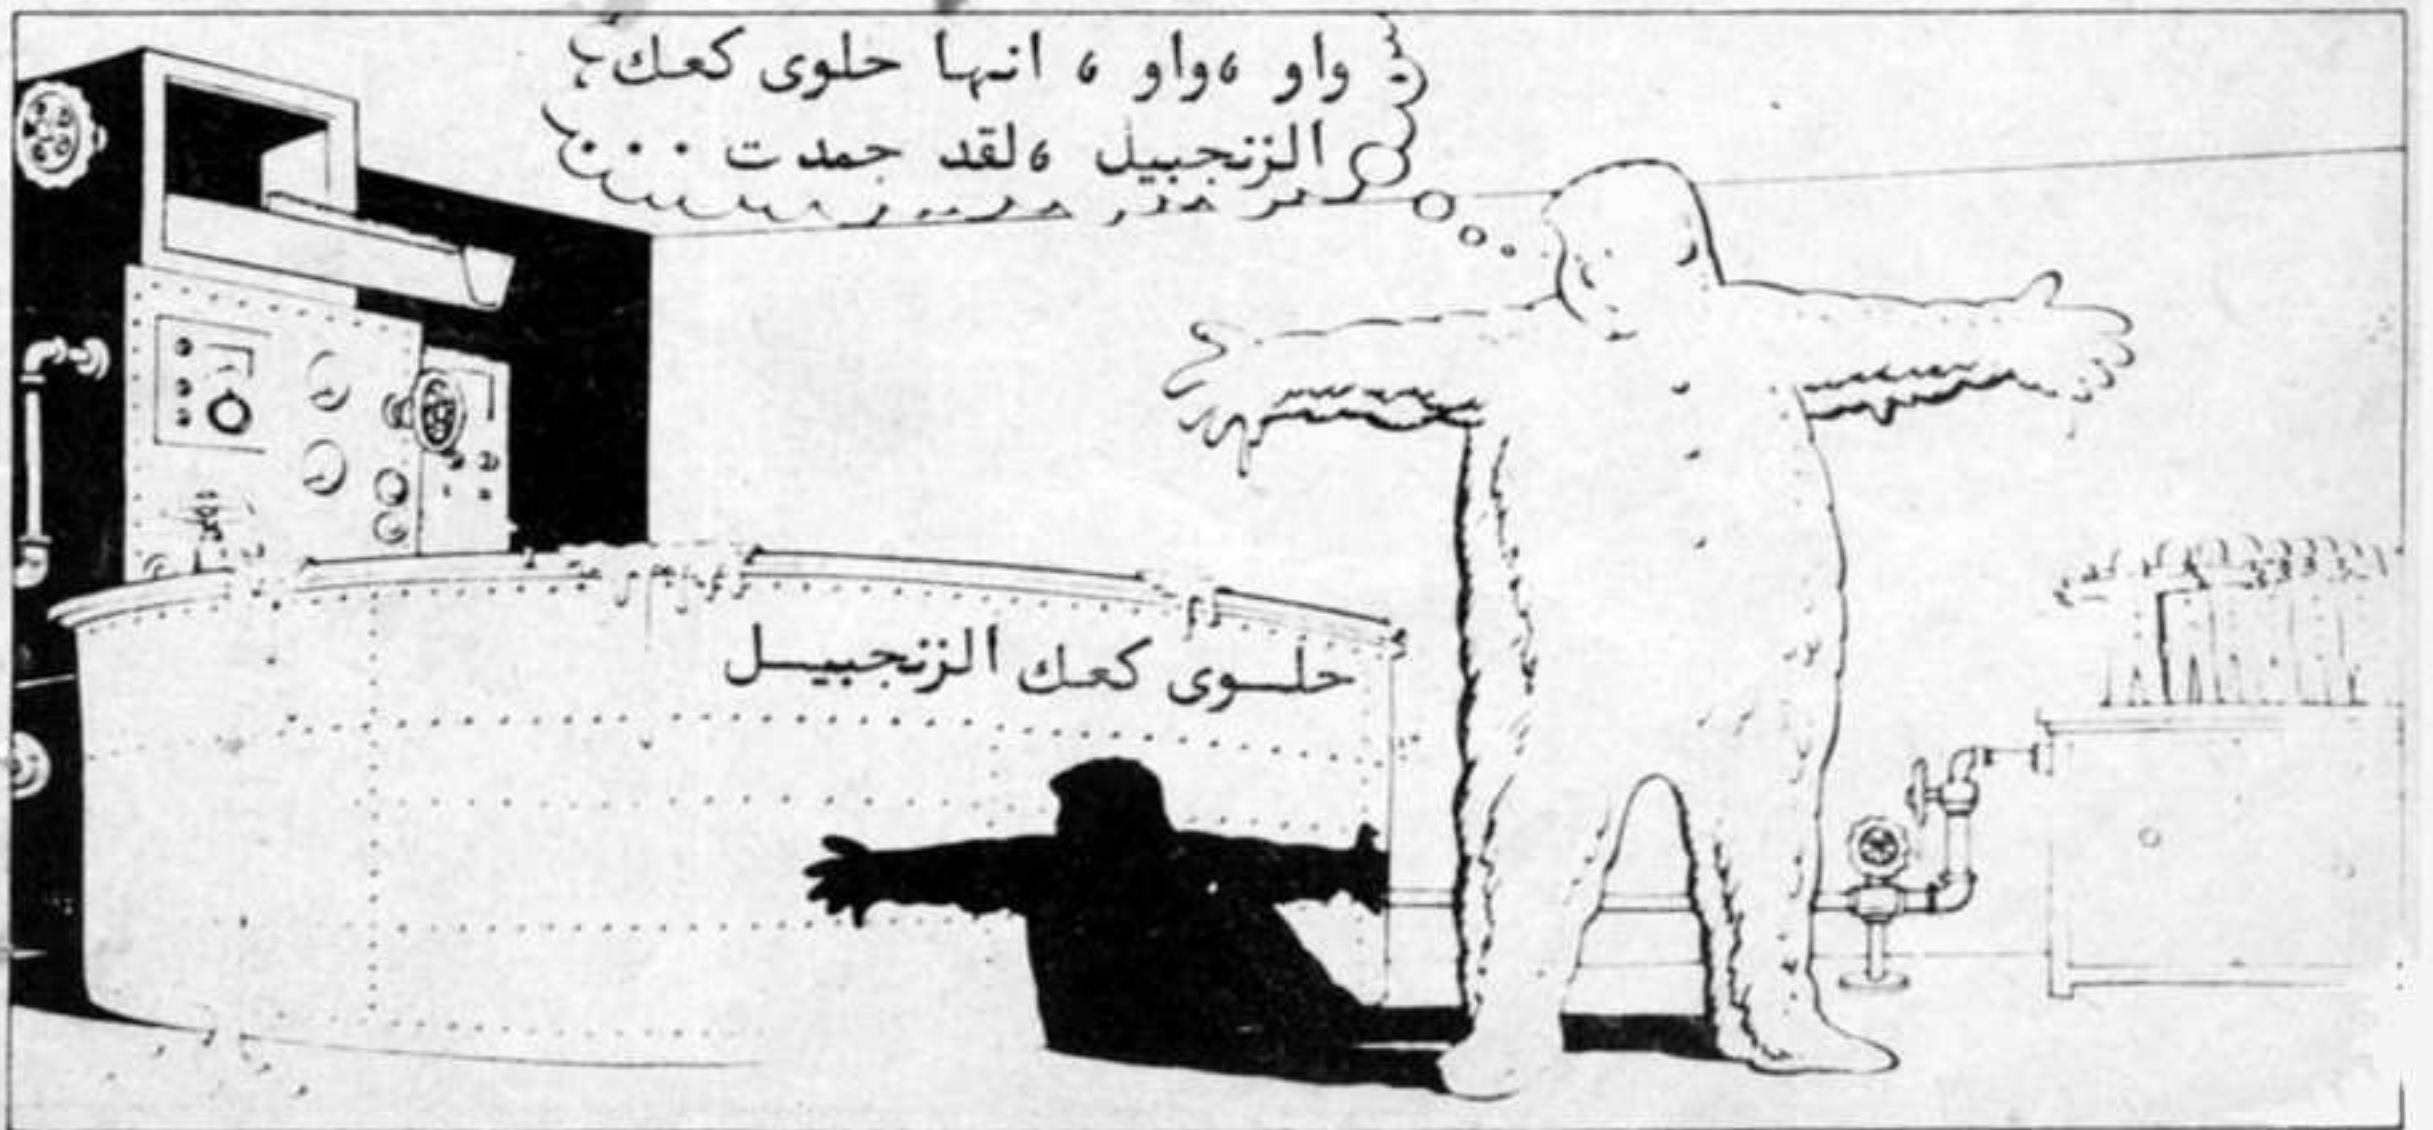 واو ،واو ، انها حلوى كعك
الزنجبيل ،لقد جمدت ...
حلــوى كعك الزنجبيــل